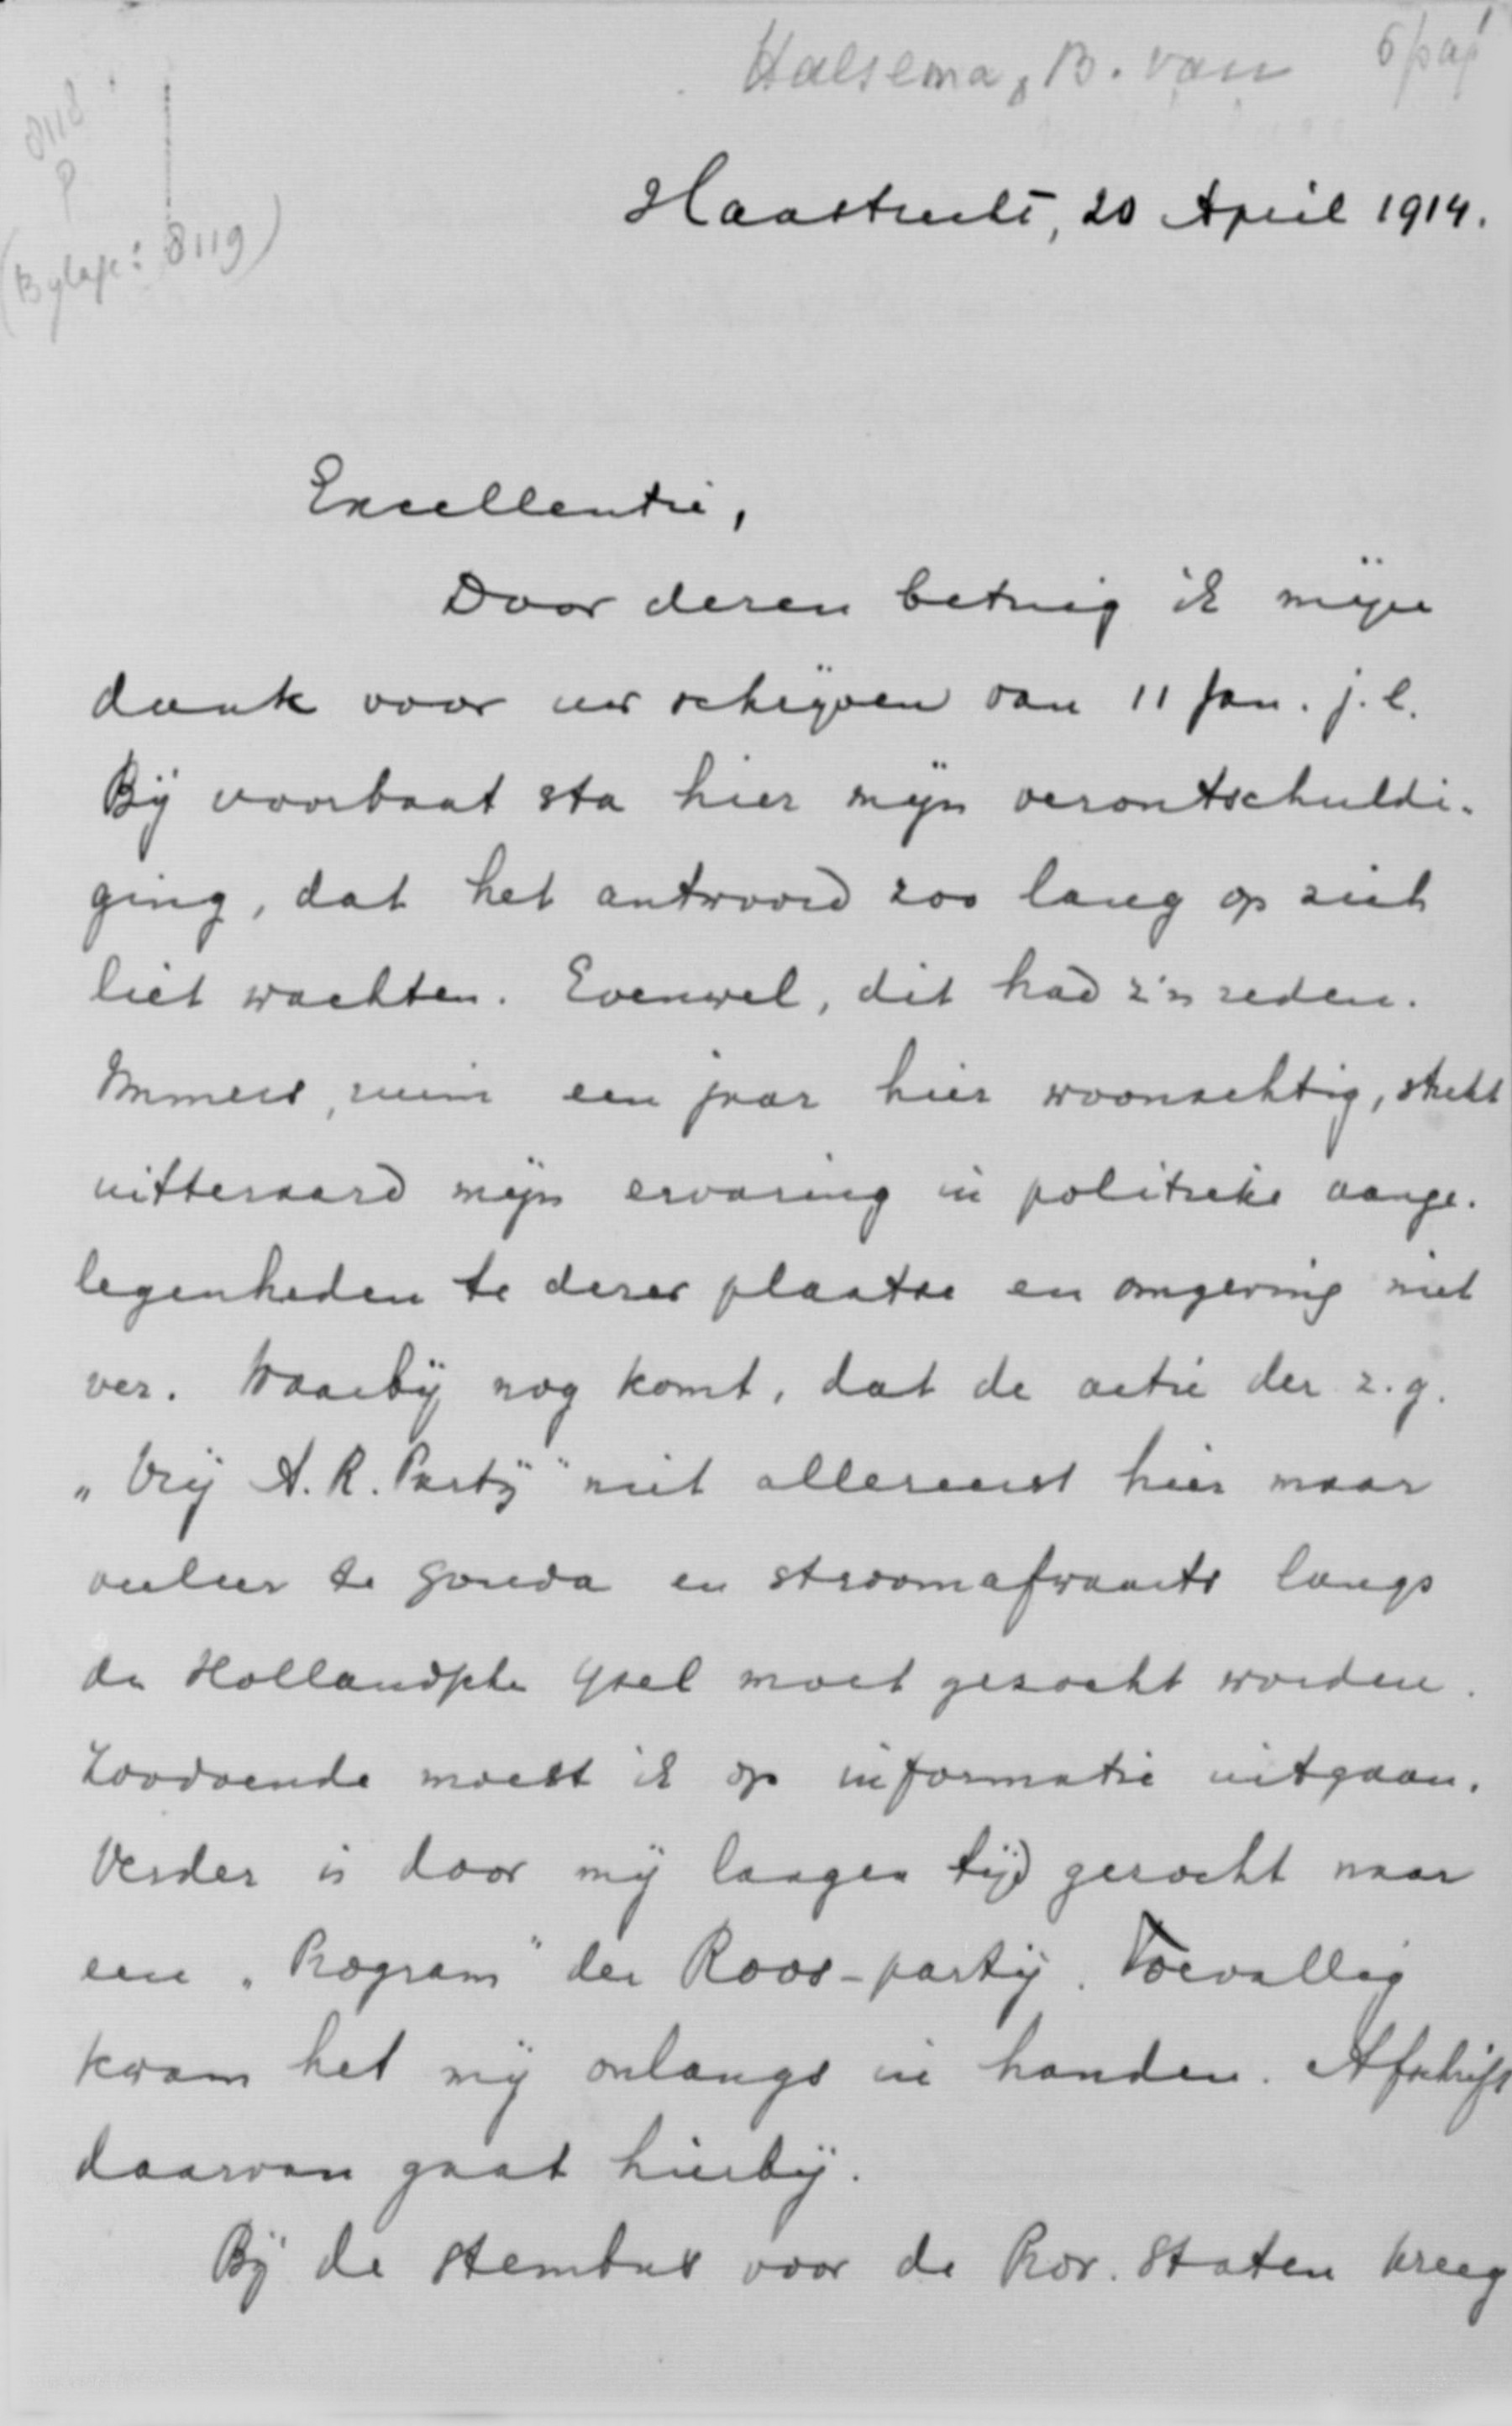 Halsema, B. van
6 pag
8118
P
(Bylage: 8119)
Haastrecht, 20 April 1914.
Excellentie,
Door dezen betuig ik mijn
dank voor uw schrijven van 11 Jan. j.l.
Bij voorbaat sta hier mijn verontschuldi-
ging, dat het antwoord zoo lang op zich
liet wachten. Evenwel, dit had z'n reden.
Immers, ruim een jaar hier woonachtig, strekt
uitteraard mijn ervaring in politieke aange-
legenheden te dezer plaatse en omgeving niet
ver. Waarbij nog komt, dat de actie der z.g.
„Vrij A.R. Partij" niet allereerst hier maar
veeleer te Gouda en stroomafwaarts langs
de Hollandsche IJsel moet gezocht worden.
Zoodoende moest ik op informatie uitgaan.
Verder is door mij langen tijd gezocht naar
een „Program" der Roos-partij. Toevallig
kwam het mij onlangs in handen. Afschrift
daarvan gaat hierbij.
Bij de stembus voor de Prov. Staten kreeg